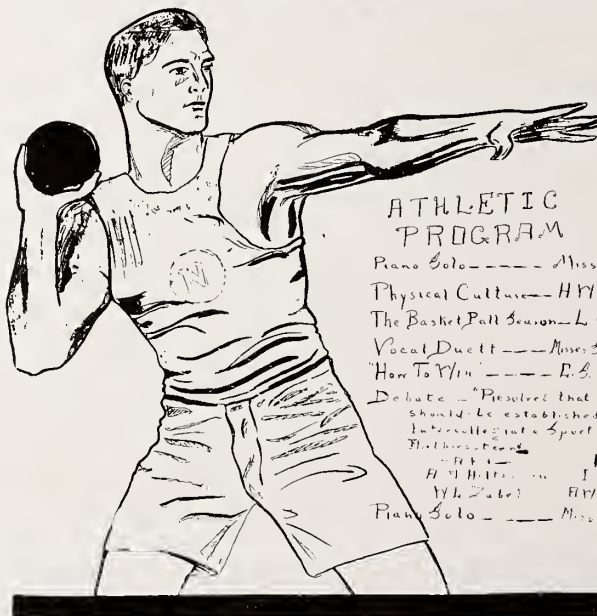 N
ATHLETIC
PROGRAM
Piano Solo ---- Miss
Physical Culture -- H W
The Basket Ball Season - L
Vocal Duett --- Misses
"How To Win" ---- E. S.
Debate - "Resolved that
should be established
Intercollegiate Sport

I
W L Zabel
Piano Solo ---- Miss